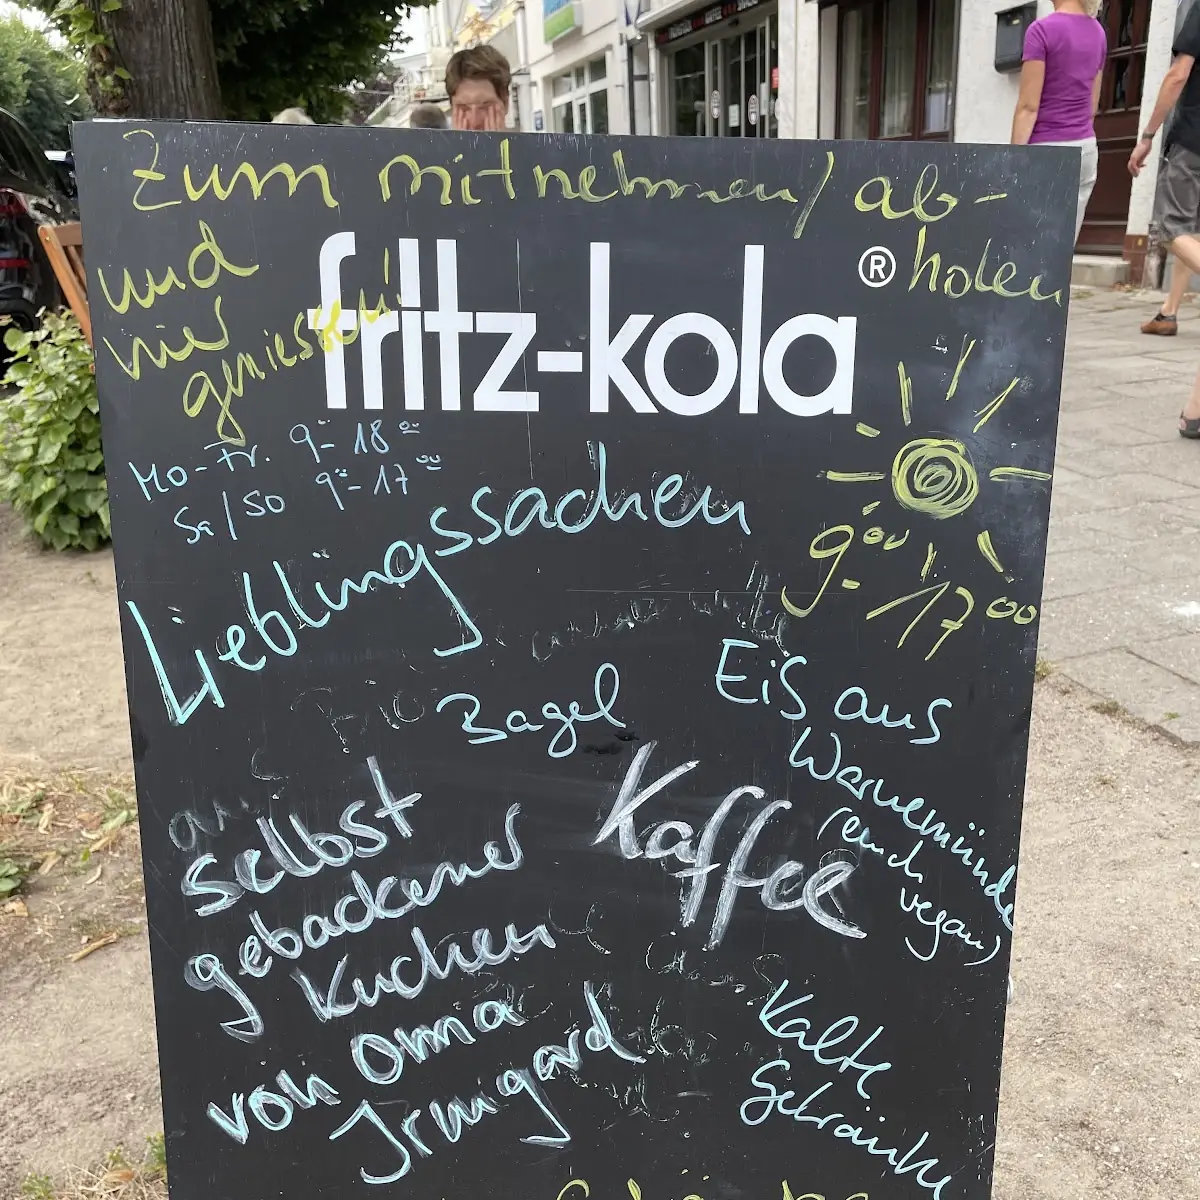 Zum mitnehmen/ab-
holen
und
hier
geniessen!
fritz-kola®
Mo-Fr. 9⁰⁰-18⁰⁰
Sa/So 9⁰⁰-17⁰⁰
9⁰⁰-17⁰⁰
Lieblingssachen
Bagel
Eis aus
Warnemünde
(auch
vegan)
Kaffee
selbst
gebackener
Kuchen
von Oma
Irmgard
Kalte
Getränke